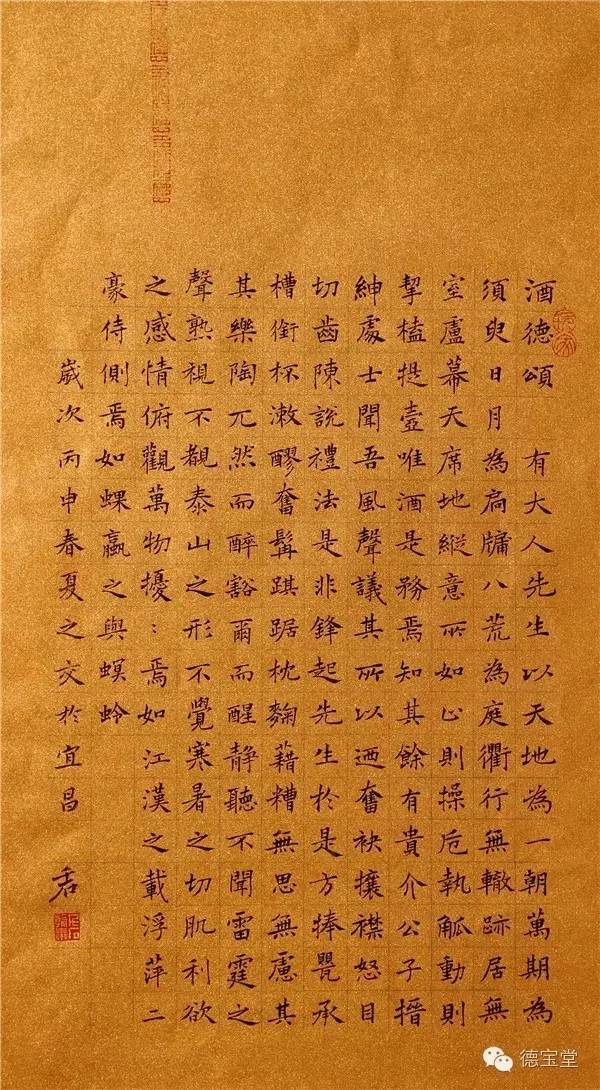 酒德頌 有大人先生以天地為一朝萬期為
須臾日月為扃牖八荒為庭衢行無轍跡居無
室盧幕天席地縱意所如止則操卮執觚動則
挈榼提壺唯酒是務焉知其餘有貴介公子搢
紳處士聞吾風聲議其所以迺奮袂攘襟怒目
切齒陳說禮法是非鋒起先生於是方捧甖承
槽銜杯漱醪奮髯踑踞枕麴藉糟無思無慮其
其樂陶兀然而醉豁爾而醒静聽不聞雷霆之
聲熟視不覩泰山之形不覺寒暑之切肌利欲
之感情俯觀萬物擾:焉如江漢之載浮萍二
豪侍側焉如蜾蠃之與螟蛉
歲次丙申春夏之交於宜昌
德宝堂